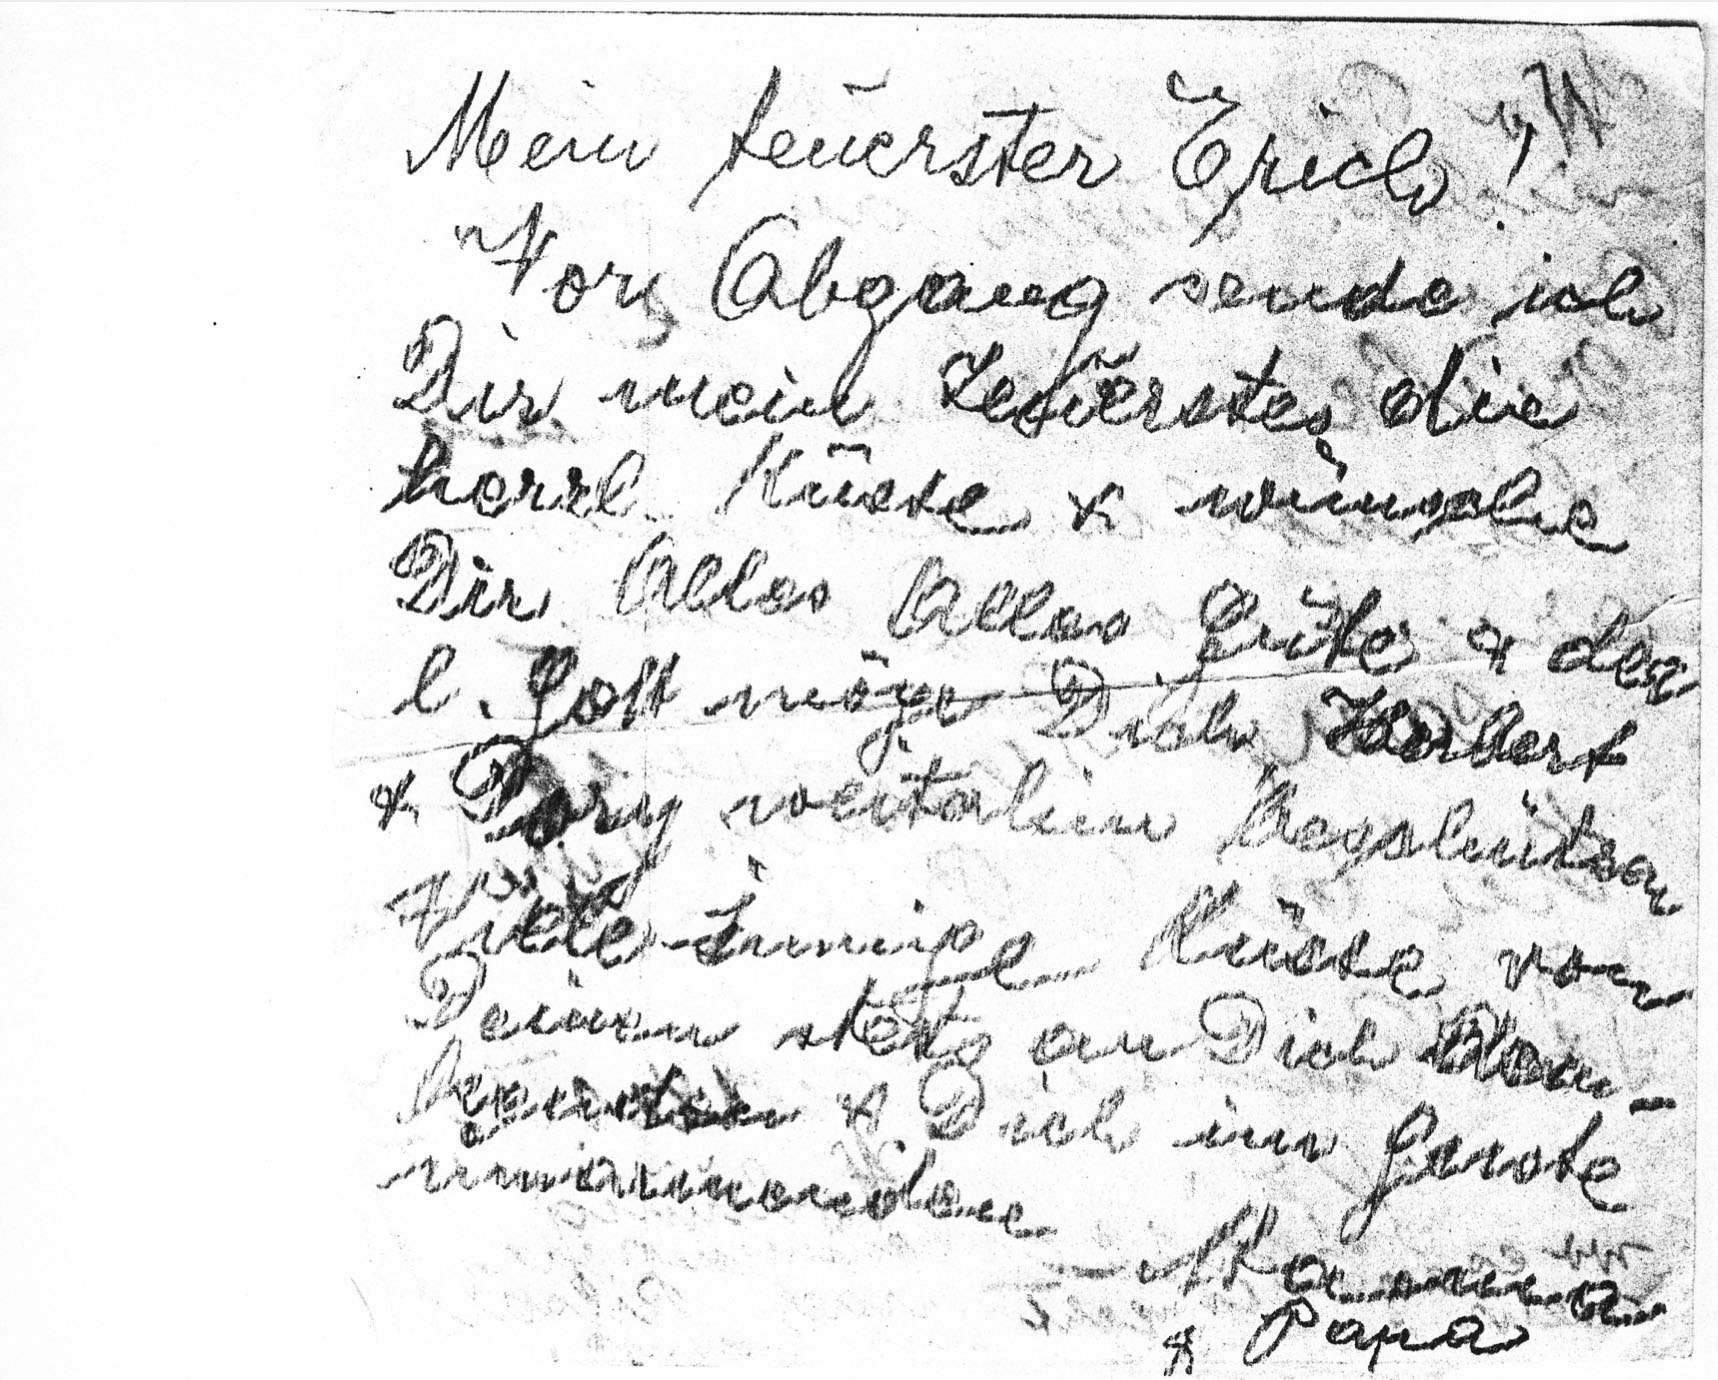 Mein teuerster Erich!
Vor Abgang sende ich
Dir mein Teuerstes die
herzl. Küsse & wünsche
Dir Alles Alles Gute & der
l. Gott möge Dich Herbert
& Dory weiterhin beschützen
Viele innige Küsse von
Deinen stets an Dich den-
kenden & Dich im Geiste
umarmenden
Mama
& Papa